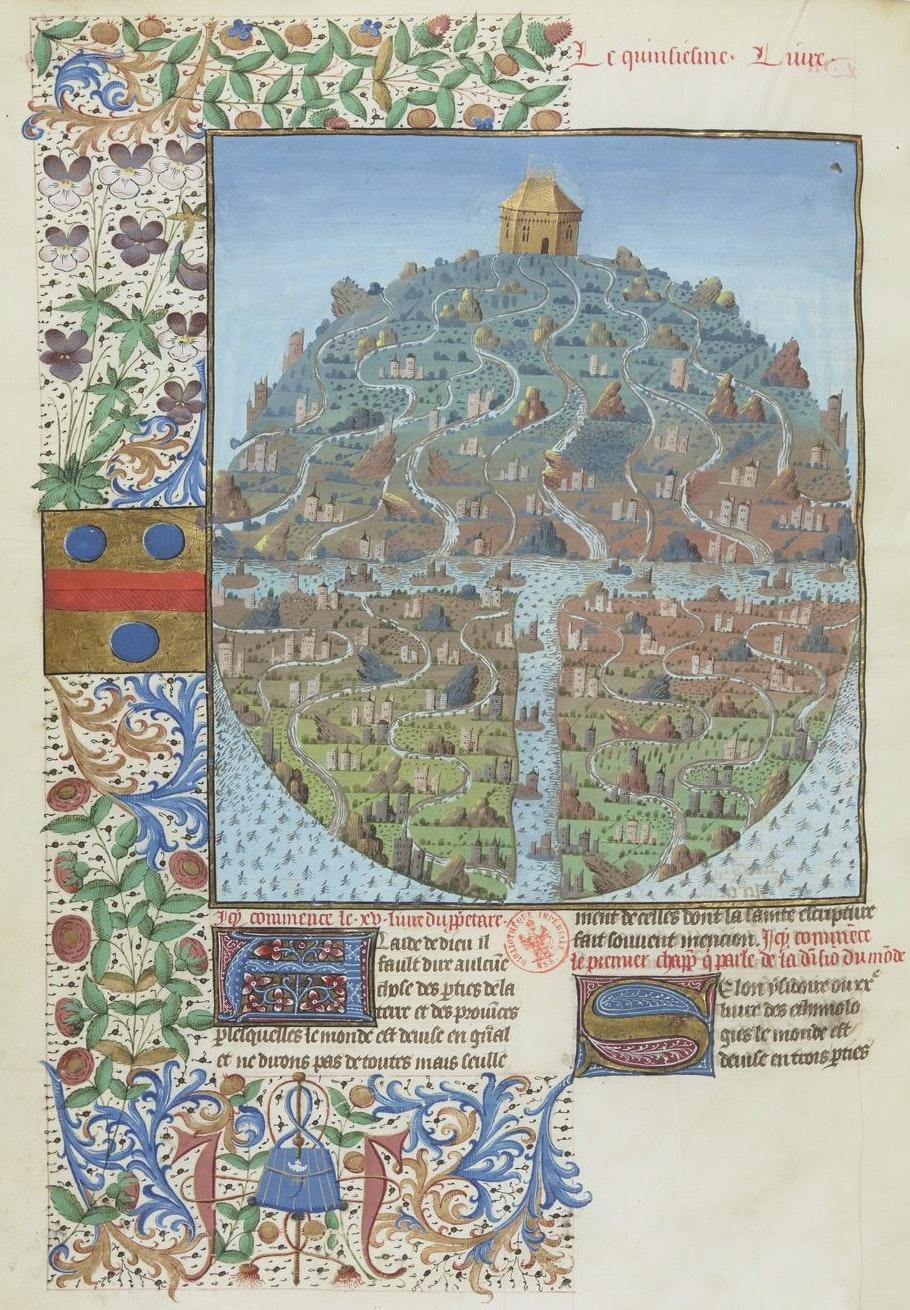 Le quinsiesme. Livre.
Icy commence le .xv. livre du ppetare.
A laide de dieu il
fault dire aulcũe
chose des pties de la
terre et des prouĩces
p lesquelles le monde est deuise en gñal
et ne dirons pas de toutes mais seulle
ment de celles dont la sainte escripture
fait souuent mencion. Icy commẽce
le premier chapp̃ q̃ parle de la diuisiõ du mõde
Selon ysidoire ou xve
liure des ethimolo
gies le monde est
deuise en trois pties